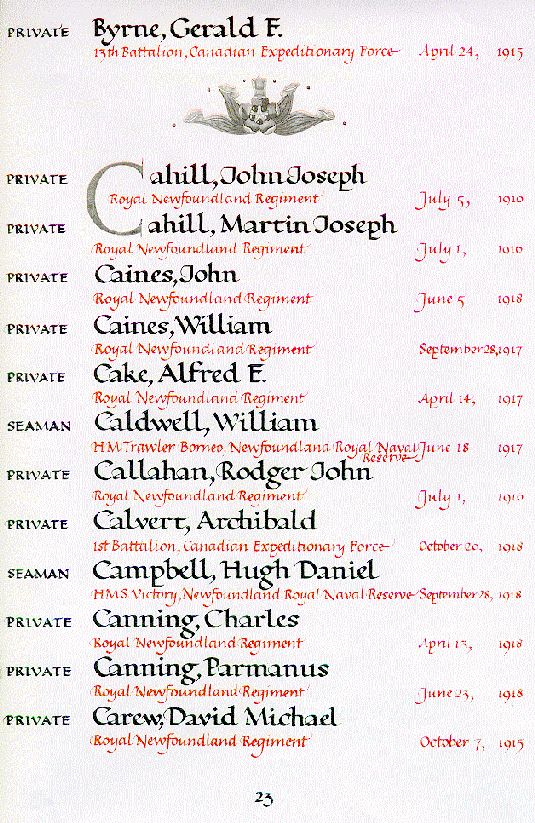 PRIVATE Byrne, Gerald F.
13th Battalion, Canadian Expeditionary Force April 24, 1915
PRIVATE Cahill, John Joseph
Royal Newfoundland Regiment July 5, 1916
PRIVATE Cahill, Martin Joseph
Royal Newfoundland Regiment July 1, 1916
PRIVATE Caines, John
Royal Newfoundland Regiment June 5 1918
PRIVATE Caines, William
Royal Newfoundland Regiment September 28, 1917
PRIVATE Cake, Alfred E.
Royal Newfoundland Regiment April 14, 1917
SEAMAN Caldwell, William
HM Trawler Borneo, Newfoundland Royal Naval Reserve June 18 1917
PRIVATE Callahan, Rodger John
Royal Newfoundland Regiment July 1, 1916
PRIVATE Calvert, Archibald
1st Battalion, Canadian Expeditionary Force October 20, 1918
SEAMAN Campbell, Hugh Daniel
HMS Victory, Newfoundland Royal Naval Reserve September 28, 1918
PRIVATE Canning, Charles
Royal Newfoundland Regiment April 13, 1918
PRIVATE Canning, Parmanus
Royal Newfoundland Regiment June 23, 1918
PRIVATE Carew, David Michael
Royal Newfoundland Regiment October 7, 1915
23